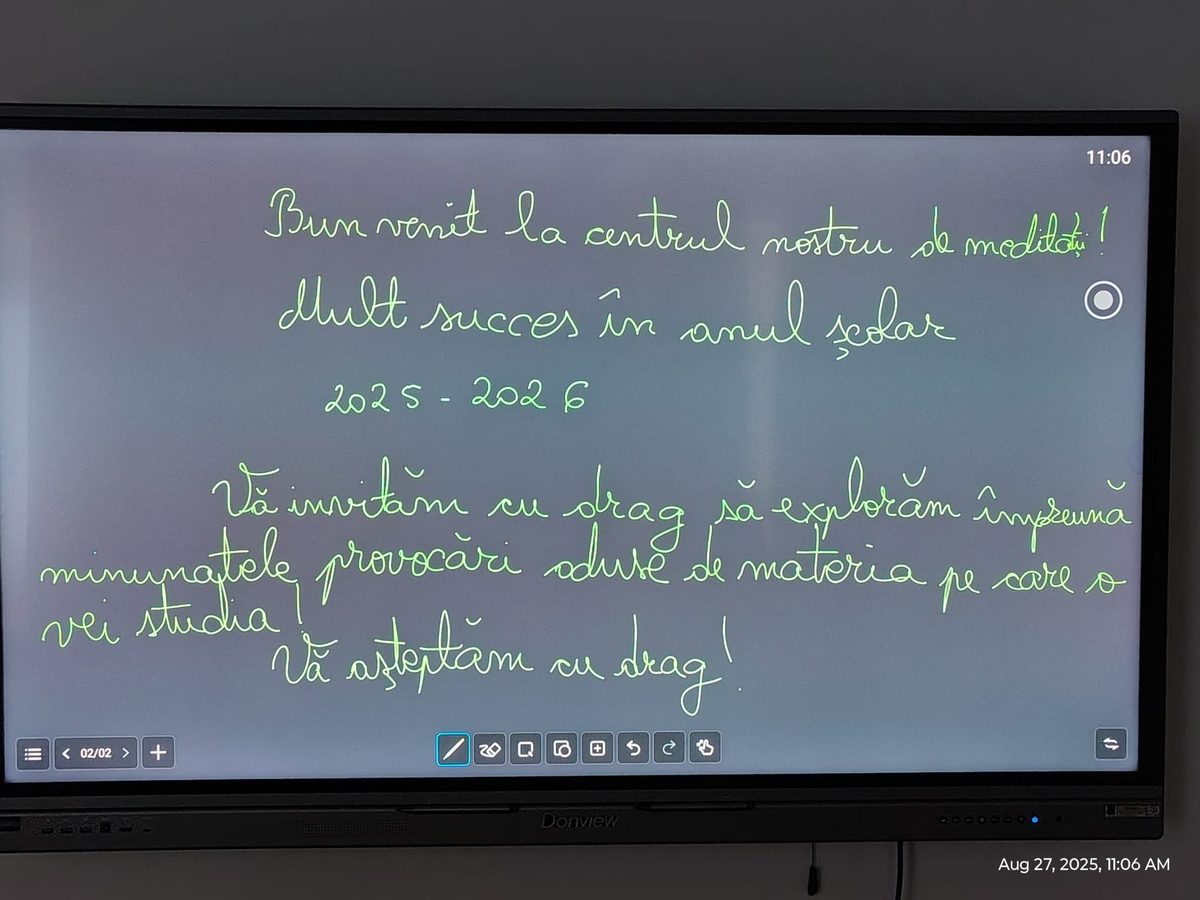 11:06
Bun venit la centrul nostru de meditații!
Mult succes în anul școlar
2025 - 2026
Vă invităm cu drag să explorăm împreună
minunațtele provocări aduse de materia pe care o
vei studia!
Vă așteptăm cu drag!
02/02
Donview
Aug 27, 2025, 11:06 AM